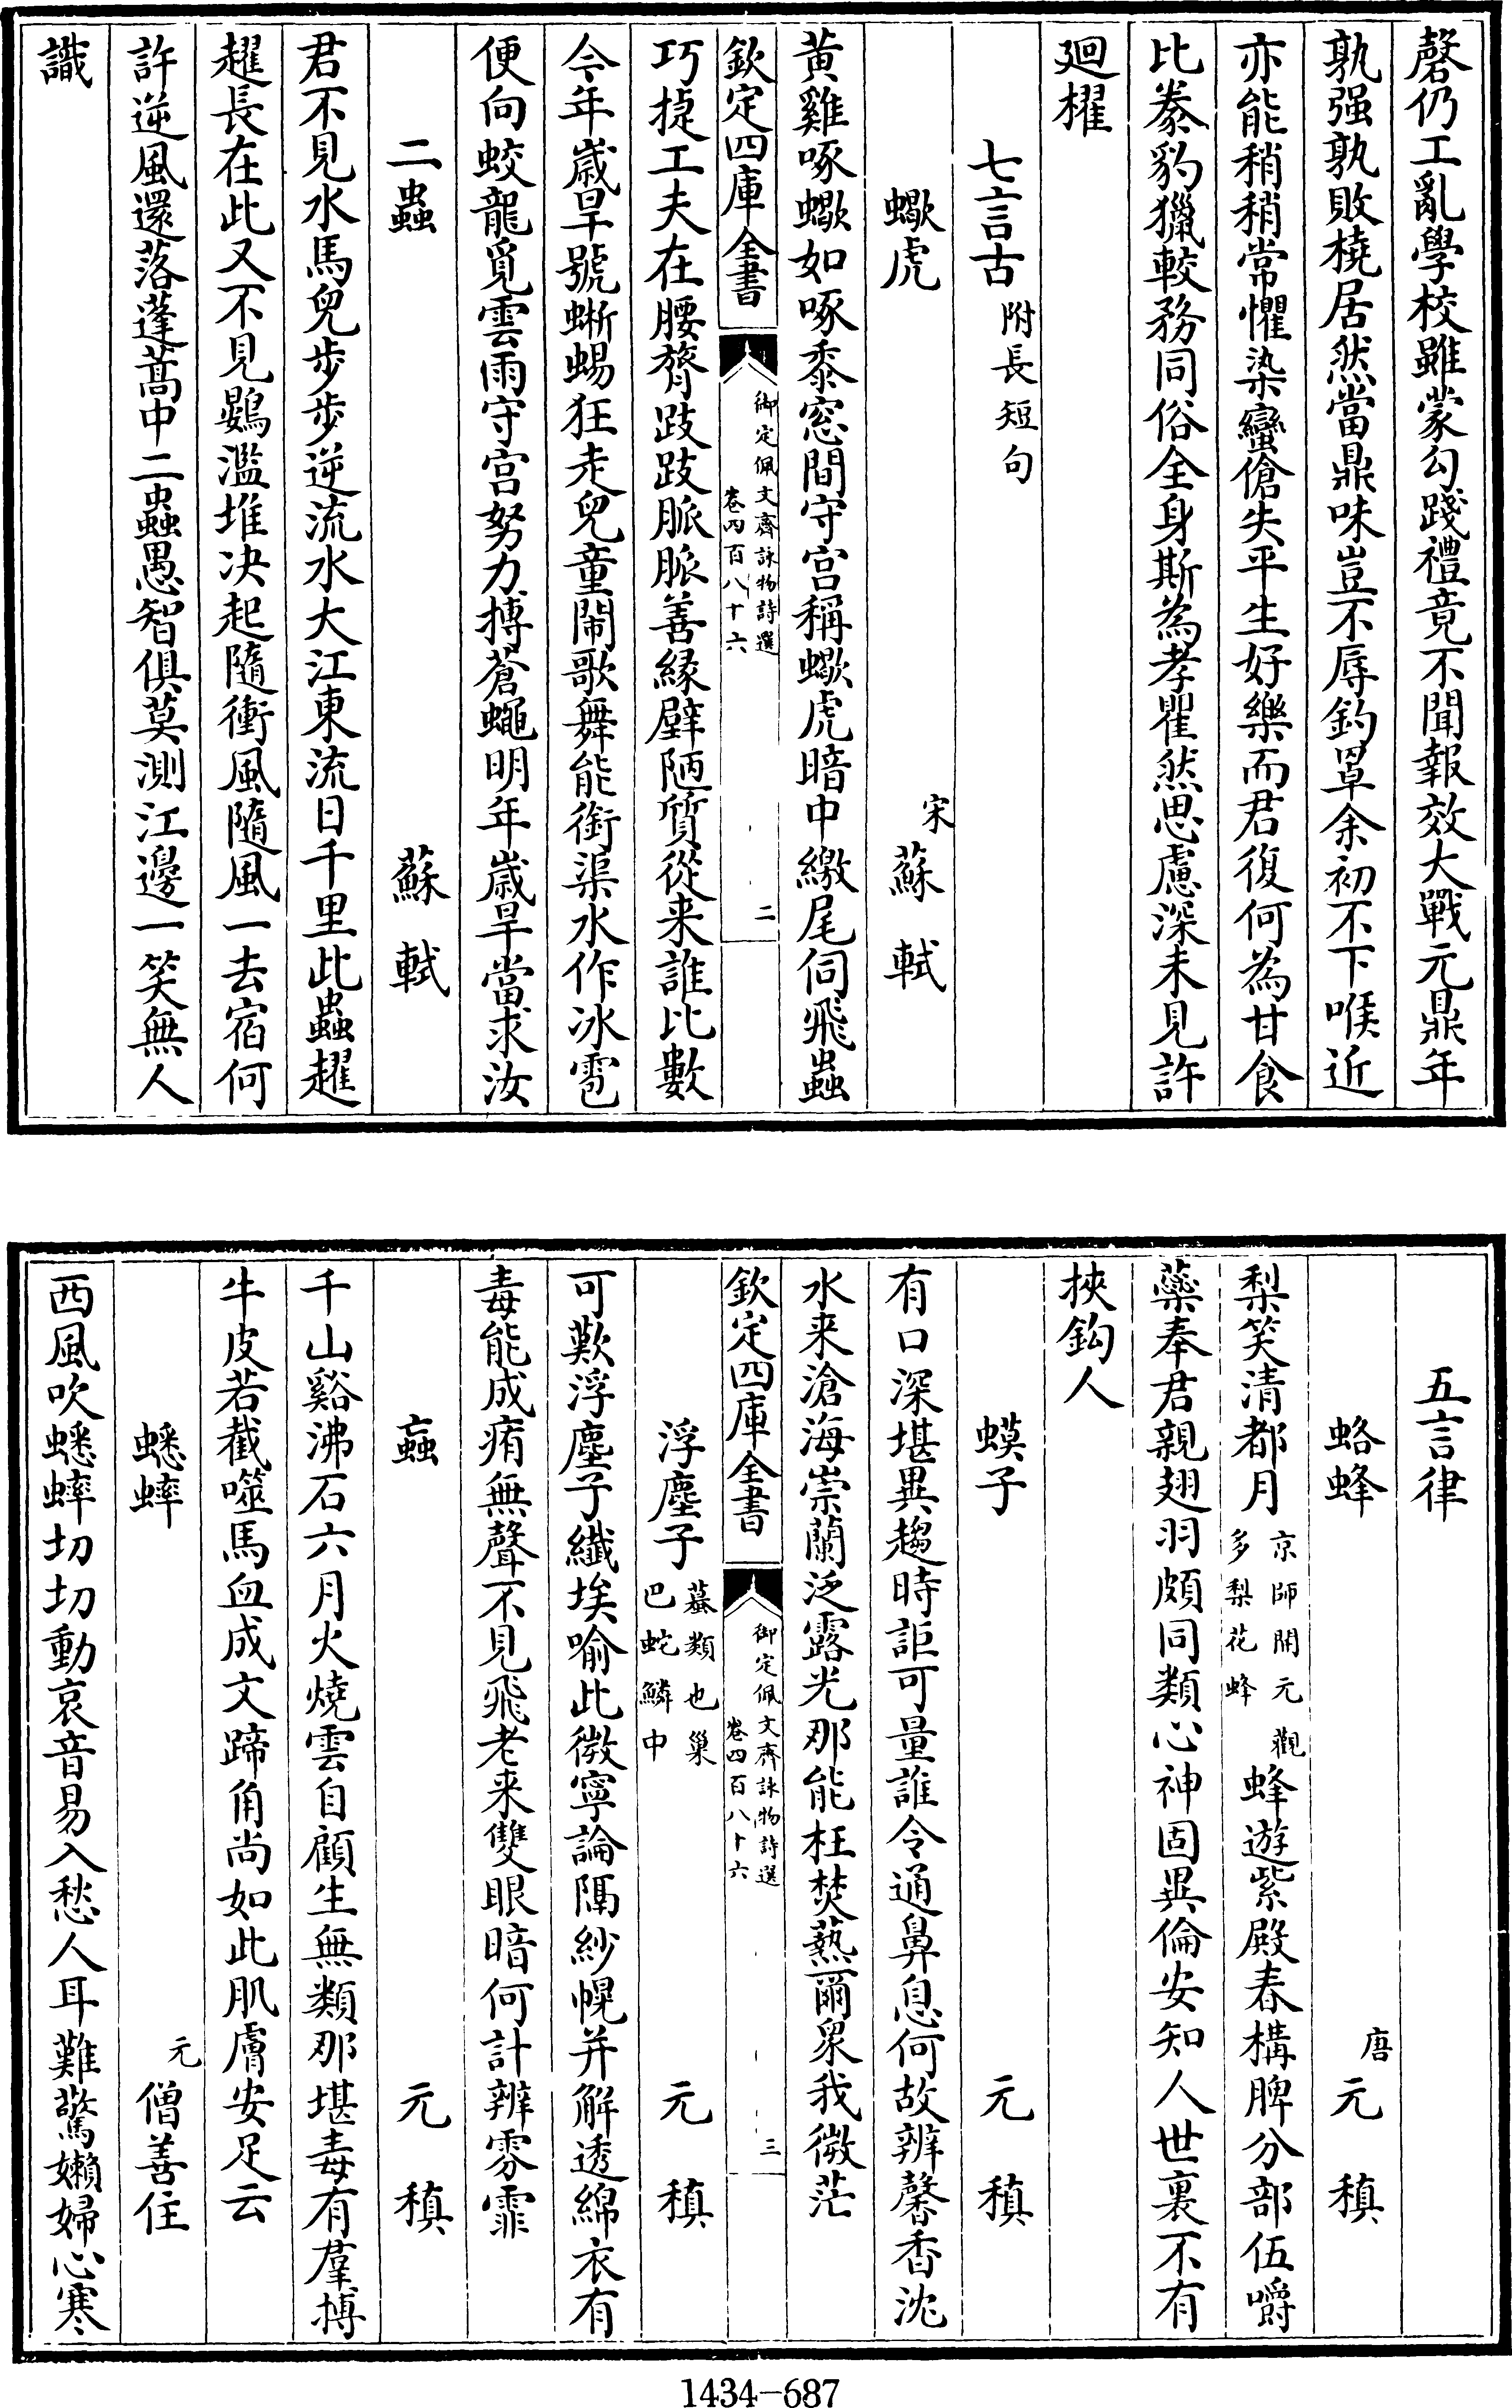 磬仍工亂學校雖蒙勾踐禮竟不聞報效大戰元鼎年
孰强孰敗橈居然當鼎味豈不辱釣罩余初不下喉近
亦能稍稍常懼染蠻傖失平生好樂而君復何為甘食
比豢豹獵較務同俗全身斯為孝瞿然思慮深未見許
廻櫂
七言古附長短句
蠍虎 宋蘇軾
黄雞啄蠍如啄黍窓間守宫稱蠍虎暗中繳尾伺飛蟲
欽定四庫全書
御定佩文齋詠物詩選
卷四百八十六
二
巧捷工夫在腰膂跂跂脈脈善緣壁陋質從来誰比數
今年嵗旱號蜥蜴狂走兒童鬧歌舞能銜渠水作冰雹
便向蛟龍覓雲雨守宫努力搏蒼蠅明年嵗旱當求汝
二蟲 蘇軾
君不見水馬兒步步逆流水大江東流日千里此蟲趯
趯長在此又不見鷃濫堆决起隨衝風隨風一去宿何
許逆風還落蓬蒿中二蟲愚智俱莫測江邊一笑無人
識
五言律
蛒蜂 唐元稹
梨笑清都月京師開元觀多梨花蜂蜂遊紫殿春構脾分部伍嚼
藥奉君親翅羽頗同類心神固異倫安知人世裏不有
挾鈎人
蟆子 元稹
有口深堪異趨時詎可量誰令通鼻息何故辨馨香沈
水来滄海崇蘭泛露光那能枉焚爇爾衆我微茫
欽定四庫全書
御定佩文齋詠物詩選
卷四百八十六
三
浮塵子蟇類也巢巴蛇鱗中 元稹
可歎浮塵子纖埃喻此微寧論隔紗幌并解透綿衣有
毒能成痏無聲不見飛老来雙眼暗何計辨雰霏
䖟 元稹
千山谿沸石六月火燒雲自顧生無類那堪毒有羣搏
牛皮若截噬馬血成文蹄角尚如此肌膚安足云
蟋蟀 元僧善住
西風吹蟋蟀切切動哀音易入愁人耳難驚嬾婦心寒
1434-687